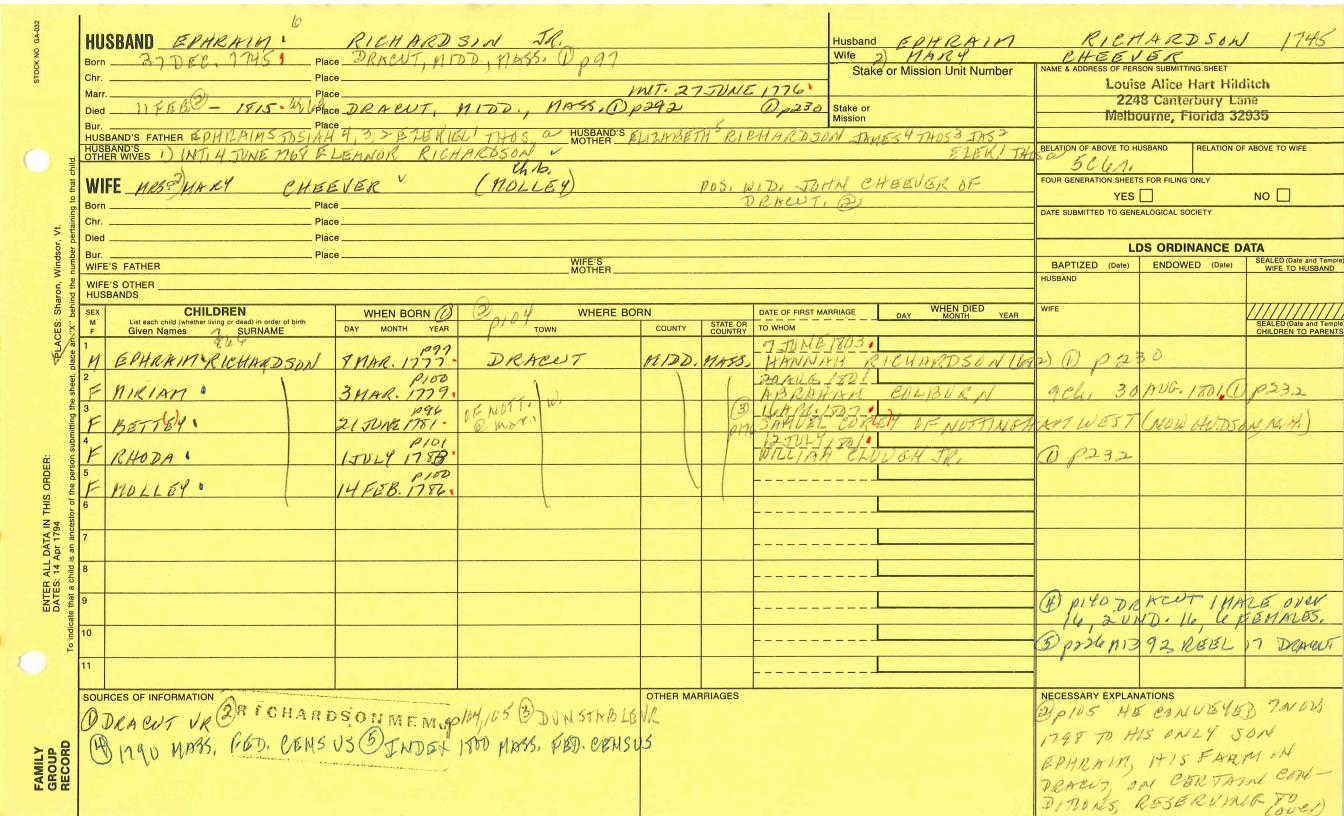 STOCK NO GA-032
HUSBAND EPHRAIM 6 RICHARDSIN JR.
Born 27 DEC. 1745 Place DRACUT, MIDD, MASS. ① p97
Chr. Place
Marr. Place INT. 27 JUNE 1776
Died 11 FEB ② - 1815 Place DRACUT, MIDD., MASS. ① p292 ① p230
Bur. Place
HUSBAND'S FATHER EPHRAIM 5 JOSIAH 4, 3, 2 EZEKIEL 1 THOS a HUSBAND'S MOTHER ELIZABETH 5 RICHARDSON JAMES 4 THOS 3 JAS 2
EZEK 1 THOS a
HUSBAND'S OTHER WIVES 1) INT. 4 JUNE 1769 ELEANOR RICHARDSON
WIFE MRS ② MARY CHEEVER (MOLLEY) POS. WID. JOHN CHEEVER OF
DRACUT. ②
Born Place
Chr. Place
Died Place
Bur. Place
WIFE'S FATHER WIFE'S MOTHER
WIFE'S OTHER HUSBANDS
Husband EPHRAIM RICHARDSON 1745
Wife 2) MARY CHEEVER
Stake or Mission Unit Number
Stake or Mission
NAME & ADDRESS OF PERSON SUBMITTING SHEET
Louise Alice Hart Hilditch
2248 Canterbury Lane
Melbourne, Florida 32935
RELATION OF ABOVE TO HUSBAND RELATION OF ABOVE TO WIFE
5C6r.
FOUR GENERATION SHEETS FOR FILING ONLY
YES NO
DATE SUBMITTED TO GENEALOGICAL SOCIETY
LDS ORDINANCE DATA
BAPTIZED (Date) ENDOWED (Date) SEALED (Date and Temple) WIFE TO HUSBAND
HUSBAND
WIFE
SEALED (Date and Temple) CHILDREN TO PARENTS
SEX M F CHILDREN List each child (whether living or dead) in order of birth Given Names SURNAME
WHEN BORN ① DAY MONTH YEAR
② p104 WHERE BORN TOWN COUNTY STATE OR COUNTRY
DATE OF FIRST MARRIAGE TO WHOM
WHEN DIED DAY MONTH YEAR
1 M EPHRAIM RICHARDSON p97 9 MAR. 1777 DRACUT MIDD. MASS. 7 JUNE 1803 HANNAH RICHARDSON ① p230
2 F MIRIAM p100 3 MAR. 1779 20 AUG. 1801 ABRAHAM COLBURN gch. 30 AUG. 1801, ① p232
3 F BETTEY p96 21 JUNE 1781 OF NOTT. W. @ mar. ③ SAMUEL CORLEY OF NOTTINGHAM WEST (NOW HUDSON, N.H.)
4 F RHODA p101 1 JULY 1783 12 JULY 1801 WILLIAM CLOUGH JR. ① p232
5 F MOLLEY p100 14 FEB. 1786
6
7
8
9
10
11
④ p140 DRACUT 1 MALE OVER
16, 2 UND. 16, 6 FEMALES.
⑤ p226 M32 REEL 17 DRACUT
SOURCES OF INFORMATION
① DRACUT VR ② RICHARDSON MEM. p104,105 ③ DUNSTABLE VR
④ 1790 MASS. FED. CENSUS ⑤ INDEX 1800 MASS. FED. CENSUS
OTHER MARRIAGES
NECESSARY EXPLANATIONS
② p105 HE CONVEYED 7 NOV
1798 TO HIS ONLY SON
EPHRAIM, HIS FARM IN
DRACUT, ON CERTAIN CON-
DITIONS, RESERVING TO
(over)
*PLACES: Sharon, Windsor, Vt.
To indicate that a child is an ancestor of the person submitting the sheet, place an "X" behind the number pertaining to that child.
ENTER ALL DATA IN THIS ORDER:
DATES: 14 Apr 1794
FAMILY GROUP RECORD